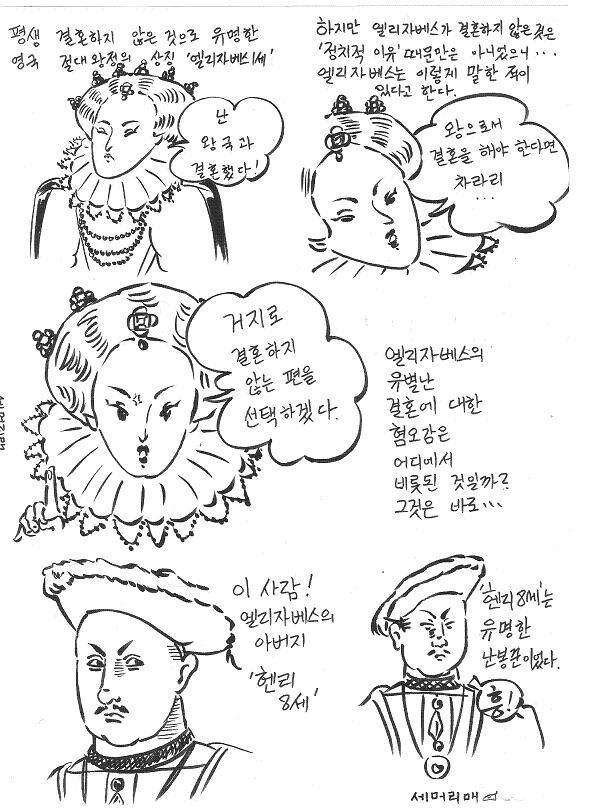 평생 결혼하지 않은 것으로 유명한
영국 절대 왕전의 상징 '엘리자베스1세'
난
왕국과
결혼했다!
하지만 엘리자베스가 결혼하지 않은 것은
'정치적 이유' 때문만은 아니었으니...
엘리자베스는 이렇게 말한 적이
있다고 한다.
왕으로서
결혼을 해야 한다면
차라리
...
거지로
결혼하지
않는 편을
선택하겠다.
엘리자베스의
유별난
결혼에 대한
혐오감은
어디에서
비롯된 것일까?
그것은 바로...
이 사람!
엘리자베스의
아버지
'헨리
8세'
'헨리 8세'는
유명한
난봉꾼이었다.
흥!
세머리매